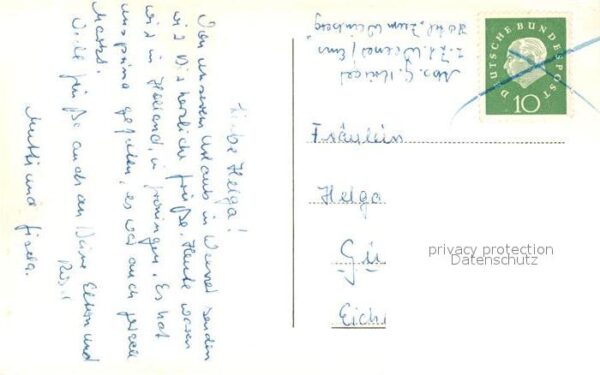 Liebe Helga!
Von unserem Urlaub in Weener senden
wir Dir herzliche Grüße. Heute waren
wir in Holland in Groningen. Es hat
uns prima gefallen, es war auch gerade
Markt.
Viele Grüße auch an Deine Eltern und
Mutti und Gisela.
z. Zt. Weener / Ems
Hotel "Zum Weinberg"
DEUTSCHE BUNDESPOST
10
Fräulein
Helga
Gü
Eich
privacy protection
Datenschutz